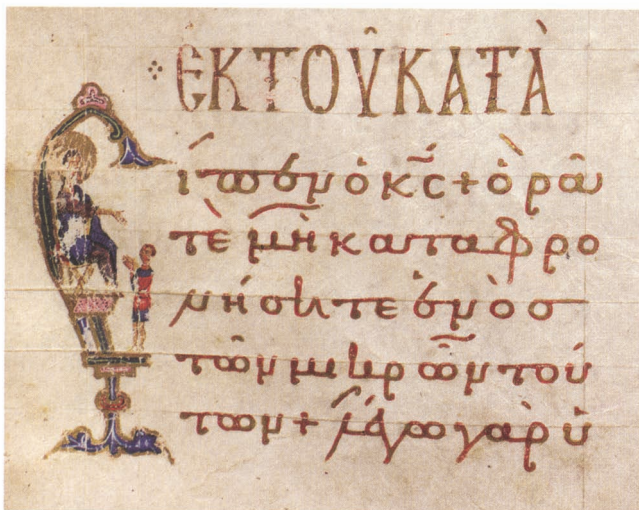 ΕΚ ΤΟΥ ΚΑΤᾺ
Εἶπεν ὁ κ̅ς̅ + ὁρᾶ
τε μὴ καταφρο
νήσητε ἑνὸς
τῶν μικρῶν τού
των + λέγω γὰρ ὑ